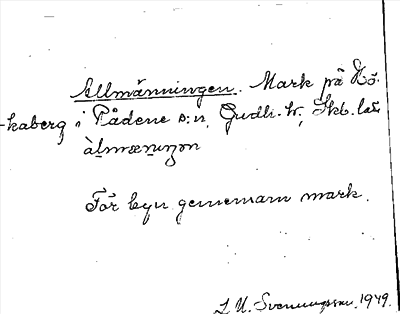 Allmänningen. Mark på Hö-
-kaberg i Rådene s:n, Gudh. hr, Skb. län
àlmænıŋən
För byn gemensam mark.
J. U. Svenungsson. 1949.